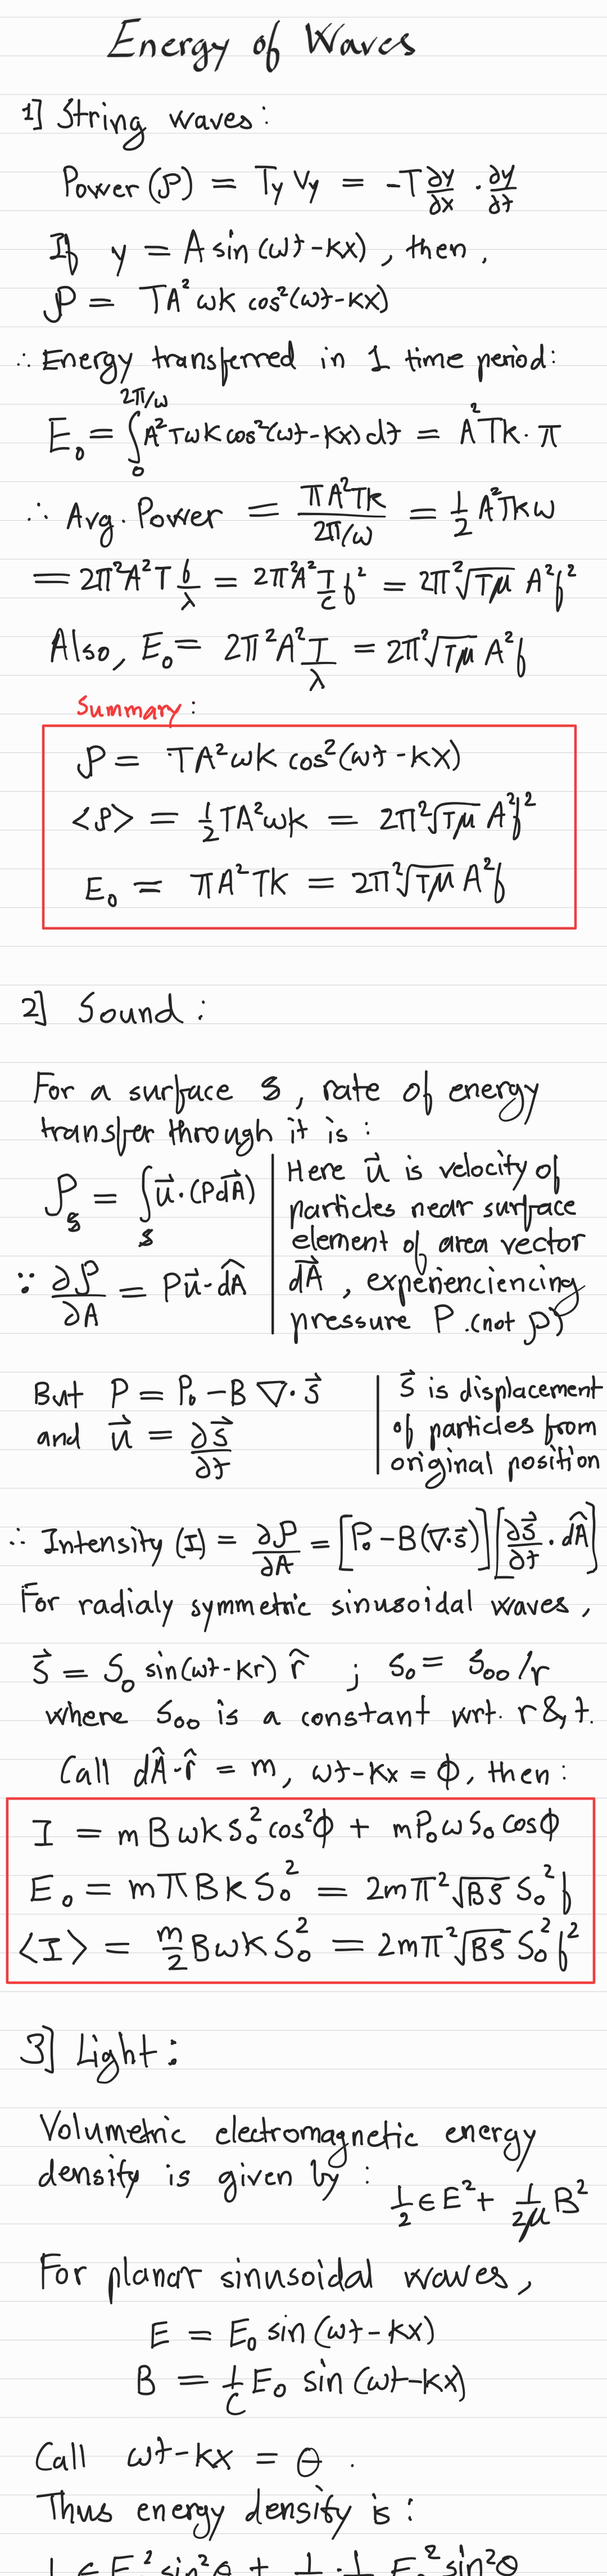 Energy of Waves
1] String waves:
Power (𝒫) = T_y V_y = -T ∂y/∂x · ∂y/∂t
If y = A sin (ωt-kx), then,
𝒫 = TA² ωk cos²(ωt-kx)
∴ Energy transferred in 1 time period:
E₀ = ∫₀^{2π/ω} A²Tωk cos²(ωt-kx) dt = A²Tk·π
∴ Avg. Power = πA²Tk / (2π/ω) = 1/2 A²Tkω
= 2π²A²T f/λ = 2π²A² T/c f² = 2π²√(Tμ) A²f²
Also, E₀ = 2π²A² T/λ = 2π²√(Tμ) A²f
Summary:
𝒫 = TA²ωk cos²(ωt-kx)
<𝒫> = 1/2 TA²ωk = 2π²√(Tμ) A²f²
E₀ = πA²Tk = 2π²√(Tμ) A²f
2] Sound:
For a surface S, rate of energy
transfer through it is:
𝒫_S = ∫_S u⃗·(PdA⃗)
∵ ∂𝒫/∂A = Pu⃗·dÂ
Here u⃗ is velocity of
particles near surface
element of area vector
dA⃗, experiencincing
pressure P.(not 𝒫)
But P = P₀ - B ∇·s⃗
and u⃗ = ∂s⃗/∂t
s⃗ is displacement
of particles from
original position
∴ Intensity (I) = ∂𝒫/∂A = [P₀ - B(∇·s⃗)][∂s⃗/∂t · dÂ]
For radialy symmetric sinusoidal waves,
s⃗ = S₀ sin(ωt-kr) r̂ ; S₀ = S₀₀/r
where S₀₀ is a constant wrt. r & t.
Call dÂ·r̂ = m, ωt-kx = ϕ, then:
I = mBωkS₀²cos²ϕ + mP₀ωS₀cosϕ
E₀ = mπBkS₀² = 2mπ²√(Bρ) S₀²f
<I> = m/2 BωkS₀² = 2mπ²√(Bρ) S₀²f²
3] Light:
Volumetric electromagnetic energy
density is given by:
1/2 ϵE² + 1/2μ B²
For planar sinusoidal waves,
E = E₀ sin (ωt-kx)
B = 1/c E₀ sin (ωt-kx)
Call ωt-kx = θ.
Thus energy density is: